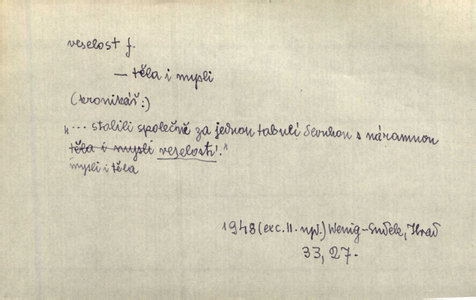 veselost f.
— těla i mysli
(kronikář:)
"... stolili společně za jednou tabulí dlouhou s náramnou
těla i mysli veselostí."
mysli i těla
1948 (exc. II. npl.) Wenig-Hrad
33, 27.